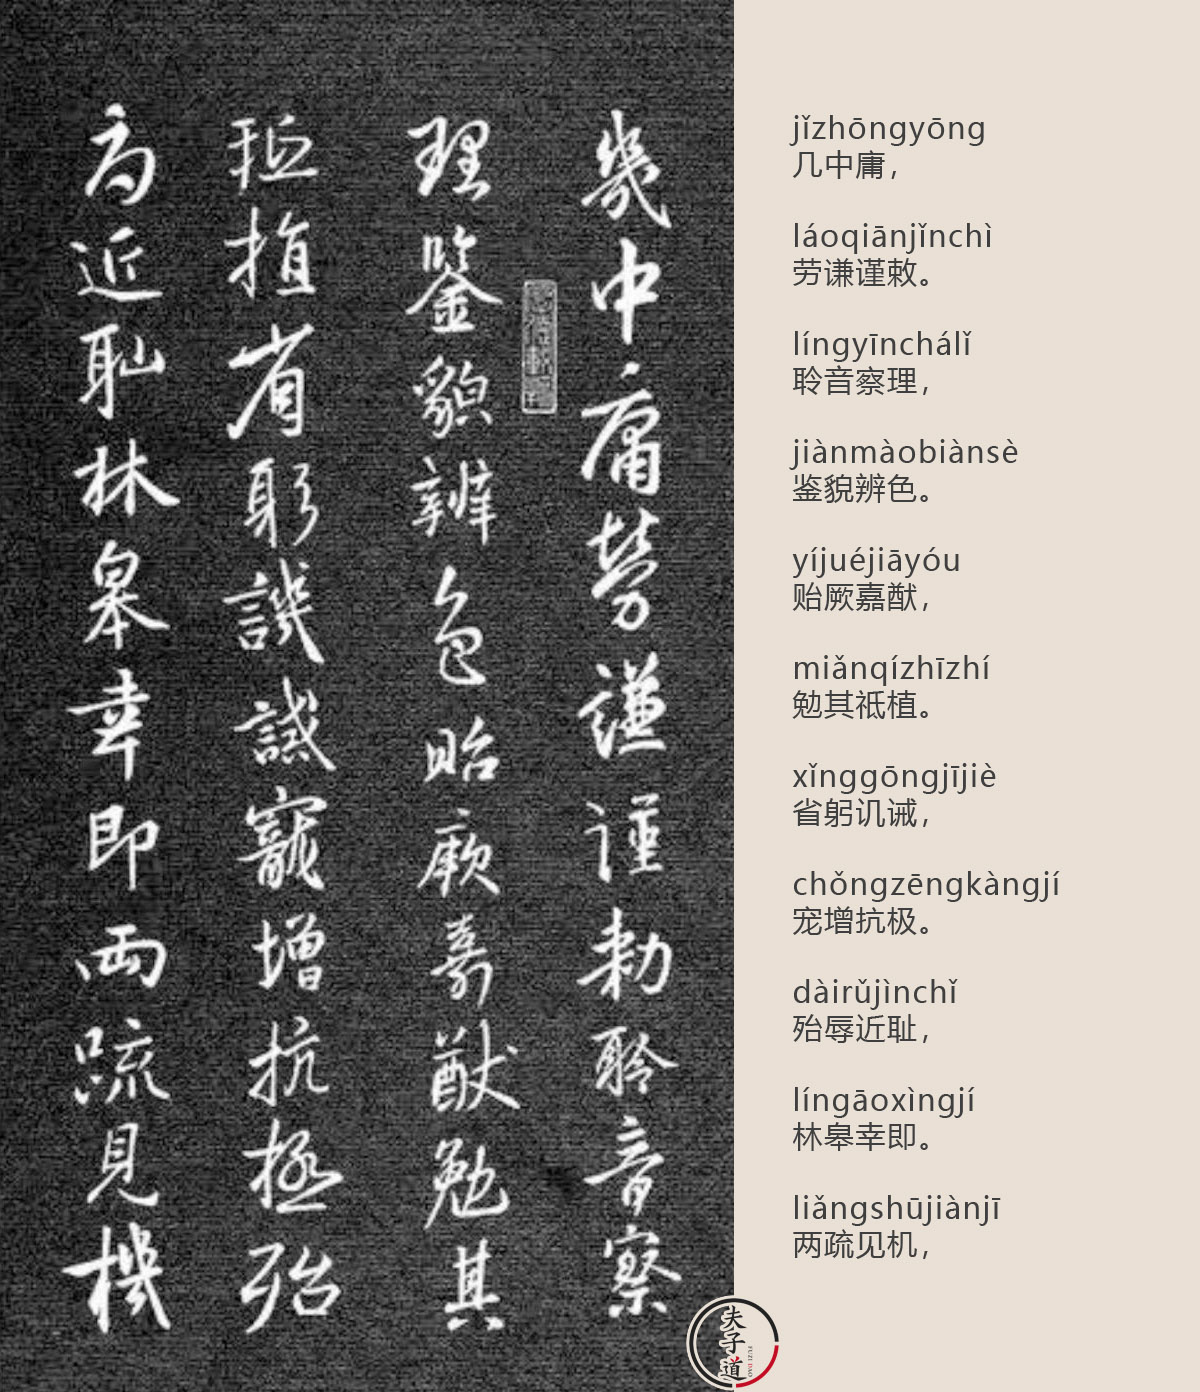 幾中庸勞謙謹勅聆音察
理鑒貌辨色貽厥嘉猷勉其
祗植省躬譏誡寵增抗極殆
辱近耻林皋幸即兩疏見機
jǐzhōngyōng
几中庸，
láoqiānjǐnchì
劳谦谨敕。
língyīnchálǐ
聆音察理，
jiànmàobiànsè
鉴貌辨色。
yíjuéjiāyóu
贻厥嘉猷，
miǎnqízhīzhí
勉其祗植。
xǐnggōngjījiè
省躬讥诫，
chǒngzēngkàngjí
宠增抗极。
dàirǔjìnchǐ
殆辱近耻，
língāoxìngjí
林皋幸即。
liǎngshūjiànjī
两疏见机，
夫子道
FUZI DAO